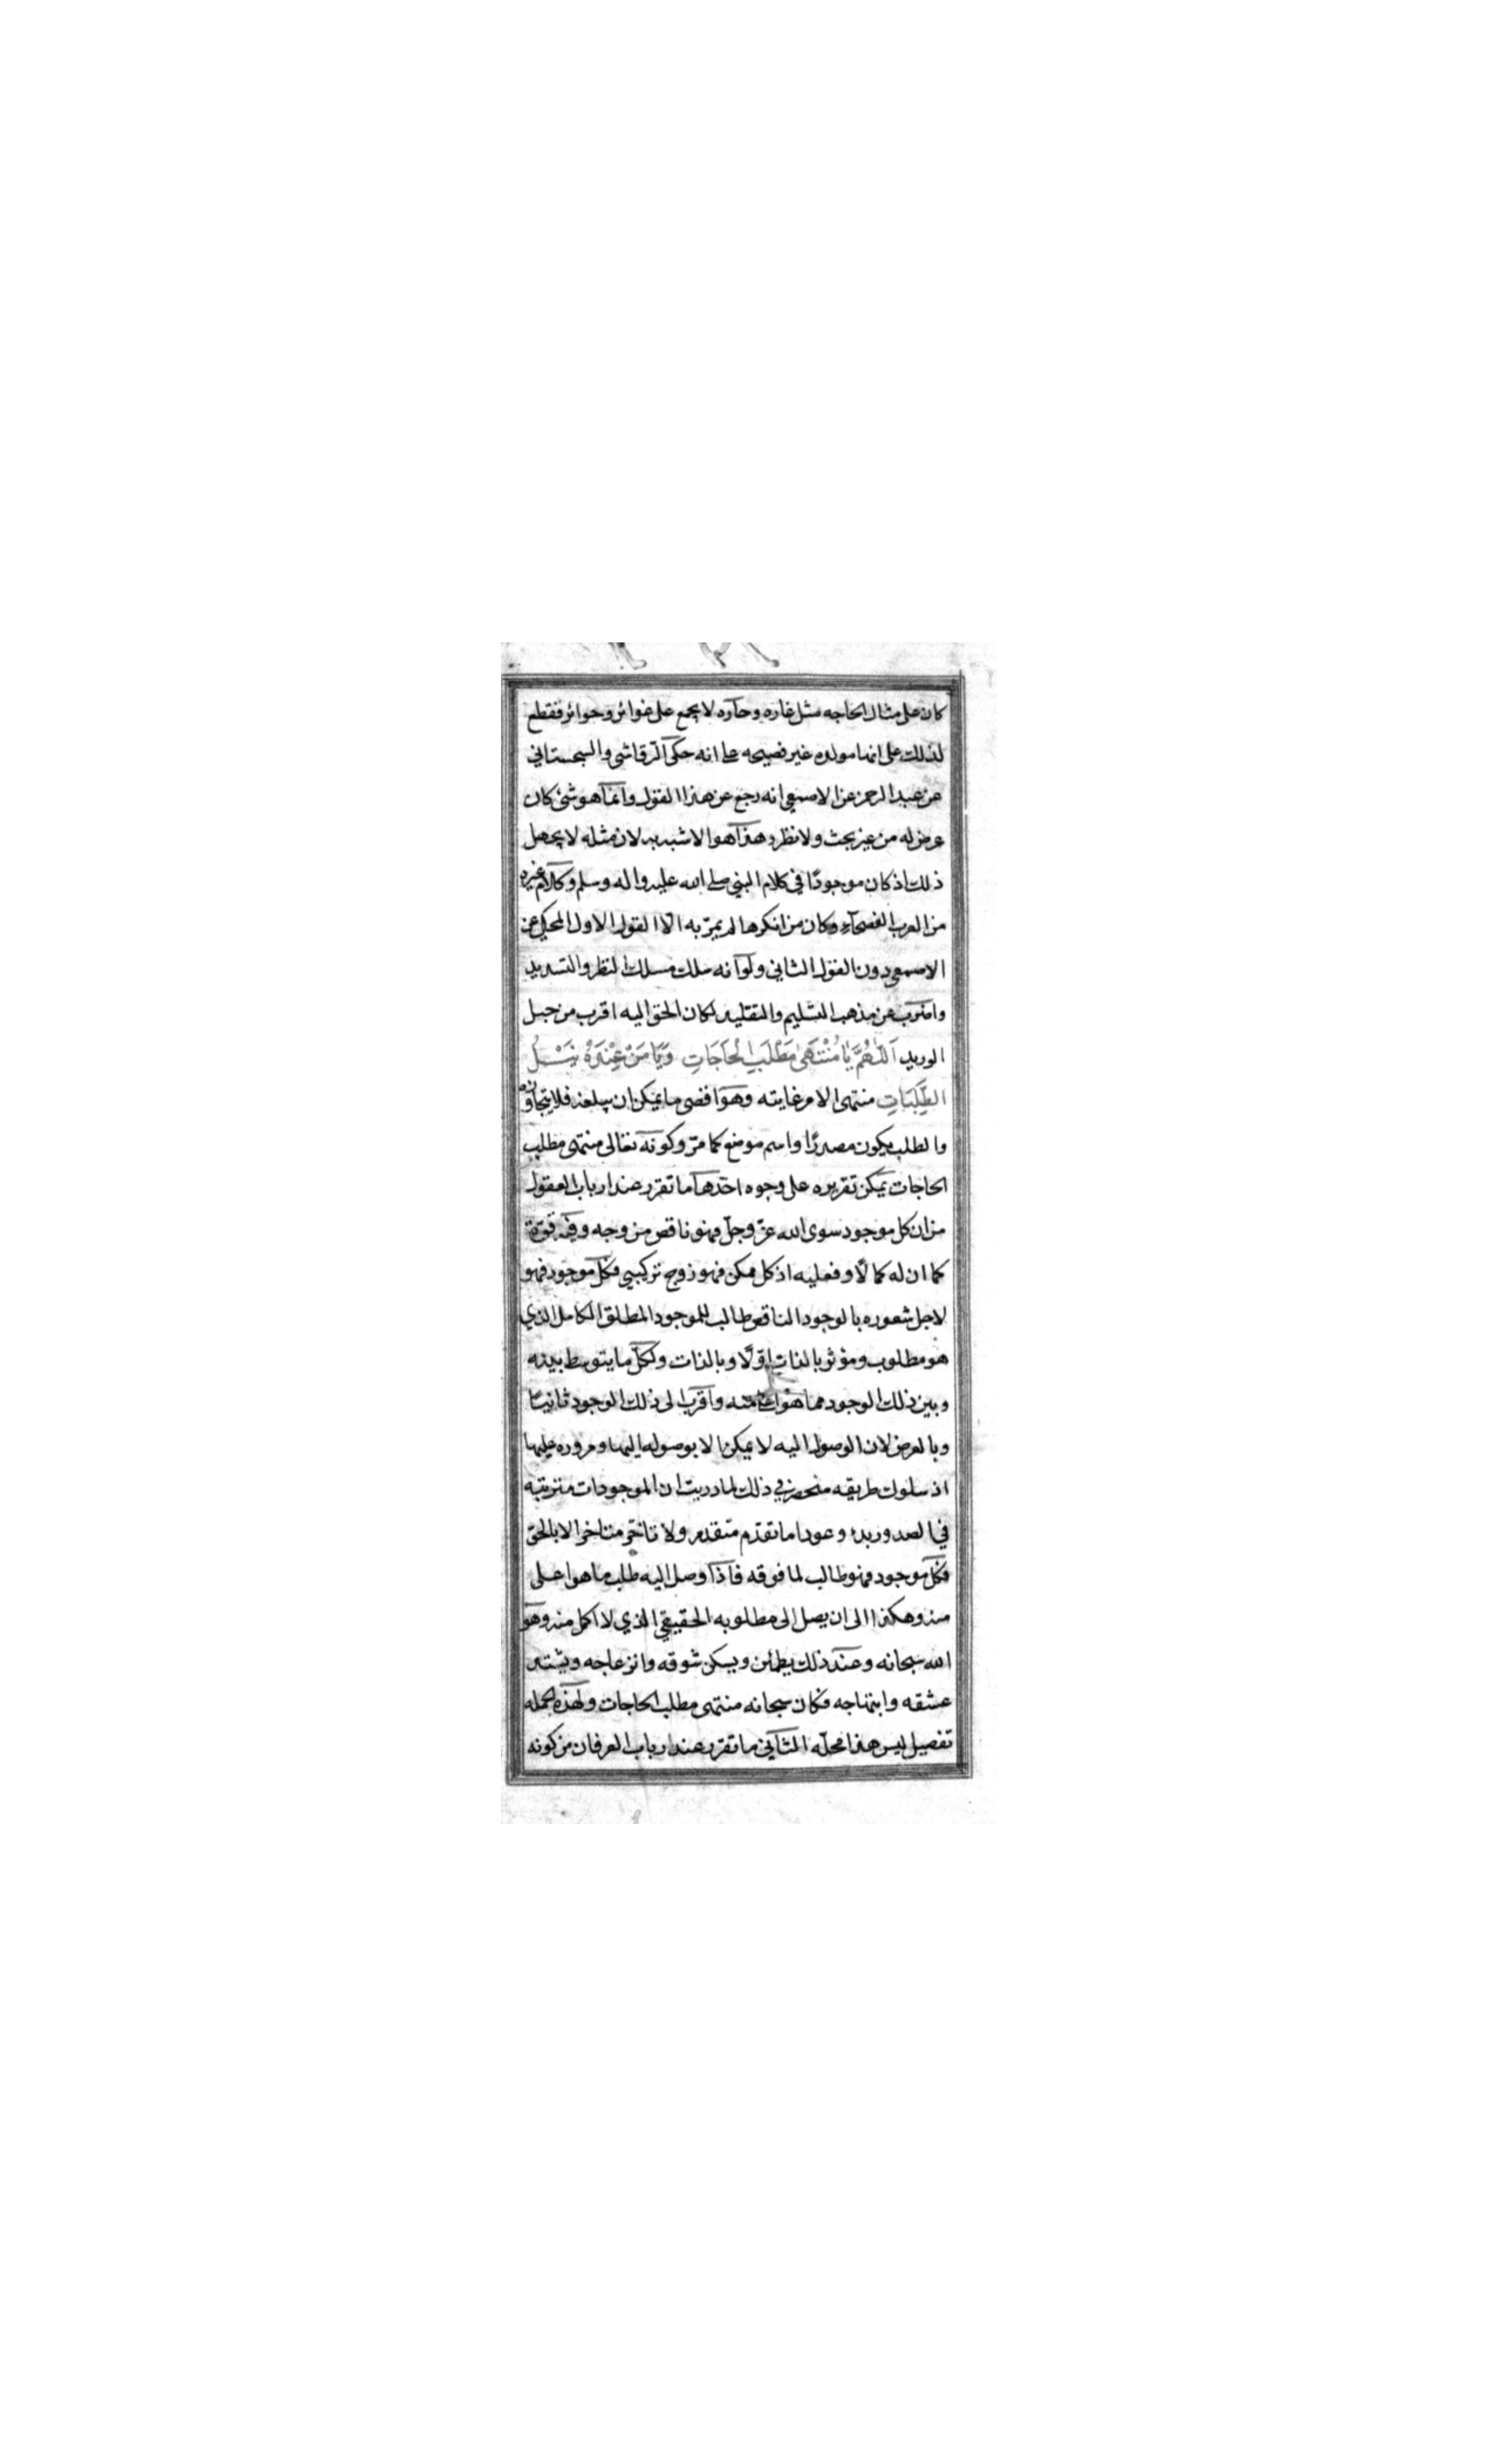 كان على مثال الحاجه مثل غاره وحاره لا يجمع على غوائر وحوائر فقطع
لذلك على انها مولده غير فصيحه على انه حكى الرقاشى والسجستاني
عن عبد الرحمن عن الاصمعي انه رجع عن هذا القول وانما هو شئ كان
عرض له من غير بحث ولا نظر وهذا هو الاشبه به لان مثله لا يجهل
ذلك اذ كان موجودًا في كلام النبي صلى الله عليه واله وسلم وكلام غيره
من العرب الفصحآء وكان من انكرها لم يمرّ به الّا القول الاول المحكي عن
الاصمعي دون القول الثاني ولو انه سلك مسلك النظر والتسديد
واضرب عن مذهب التسليم والتقليد لكان الحق اليه اقرب من حبل
الوريد اَللّٰهُمَّ يَا مُنْتَهىٰ مَطْلَبِ الْحَاجَاتِ وَيَا مَنْ عِنْدَهُ نَيْلُ
الطَّلِبَاتِ منتهى الامر غايته وهو اقصى ما يمكن ان يبلغه فلا يتجاوزه
والطلب يكون مصدرًا واسم موضع كما مرّ وكونه تعالى منتهى مطلب
الحاجات يمكن تقريره على وجوه احدها ما تقرر عند ارباب العقول
من ان كل موجود سوى الله عزّ وجلّ فهو ناقص من وجه وفيه قوّة
كما ان له كمالًا وفعليه اذ كل ممكن فهو زوج تركيبي فكل موجود فهو
لاجل شعوره بالوجود الناقص طالب للموجود المطلق الكامل الذي
هو مطلوب ومؤثر بالذات اوّلًا وبالذات ولكلّ ما يتوسط بينه
وبين ذلك الوجود مما هو منه واقرب الى ذلك الوجود ثانيًا
وبالعرض لان الوصول اليه لا يمكن الا بوصوله اليها ومروره عليها
اذ سلوك طريقه منحصر في ذلك لما دريت ان الموجودات مترتبه
في الصدور بدء وعودا ما تقدّم متقدم ولا تاخّر متاخر الا بالحق
فكل موجود فهو طالب لما فوقه فاذا وصل اليه طلب ما هو اعلى
منه وهكذا الى ان يصل الى مطلوبه الحقيقي الذي لا اكمل منه وهو
الله سبحانه وعند ذلك يطمئن ويسكن شوقه وانزعاجه ويشتد
عشقه وابتهاجه فكان سبحانه منتهى مطلب الحاجات ولهذه الجمله
تفصيل ليس هذا محلّه الثاني ما تقرر عند ارباب العرفان من كونه